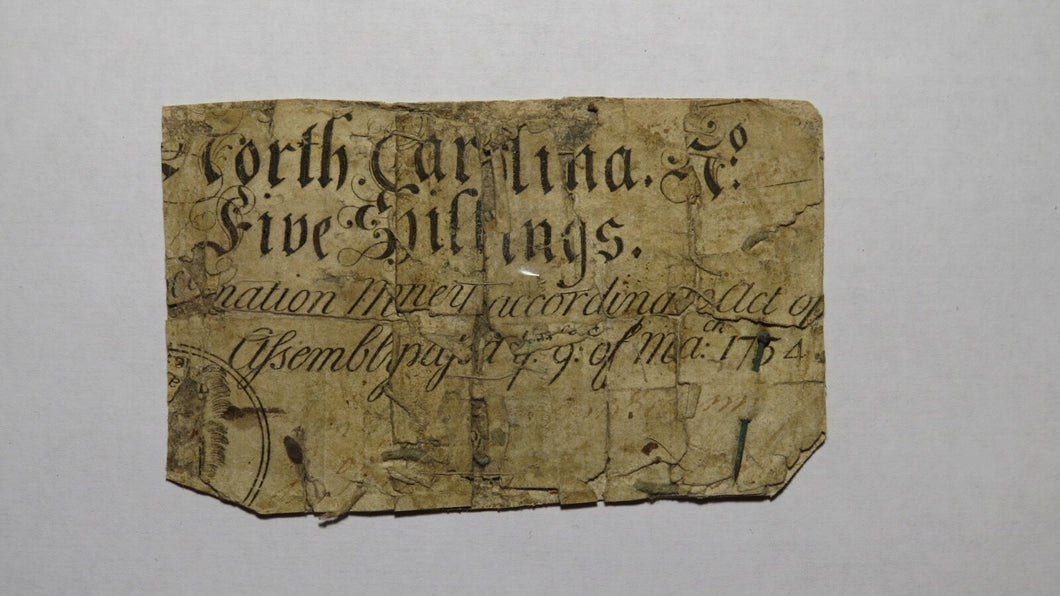 North Carolina. Nº.
Five Shillings.
mation Money according to Act of
Assembly pass'd yᵉ 9: of Ma: 1754